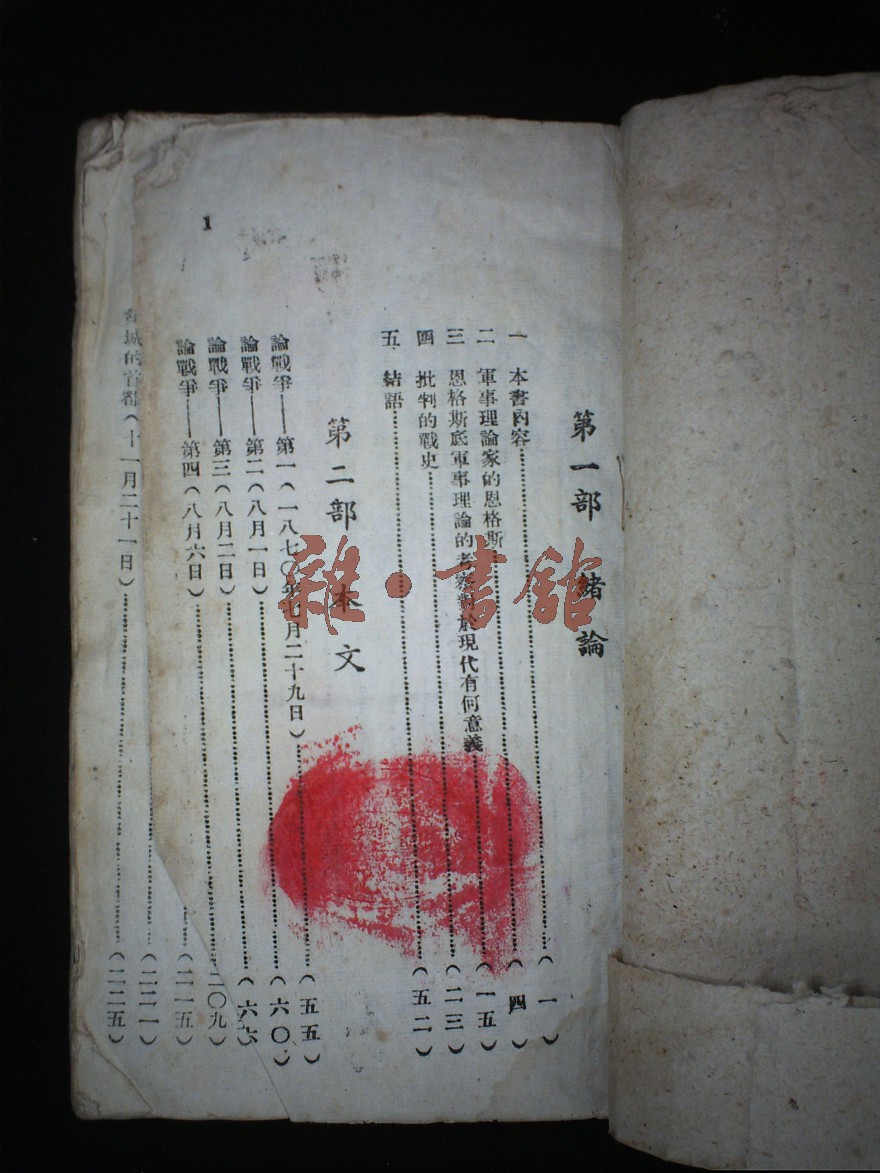 第一部 緒論
一 本書內容……(一)
二 軍事理論家的恩格斯……(四)
三 恩格斯底軍事理論的考察對於現代有何意義……(一五)
四 批判的戰史……(二三)
五 結語……(五二)
第二部 本文
論戰爭——第一(一八七〇年七月二十九日)……(五五)
論戰爭——第二(八月一日)……(六〇)
論戰爭——第三(八月二日)……(六六)
論戰爭——第四(八月六日)……二〇九)
……(二一五)
……(二二一)
城的首都(十一月二十一日)……(二二五)
1
雜·書館